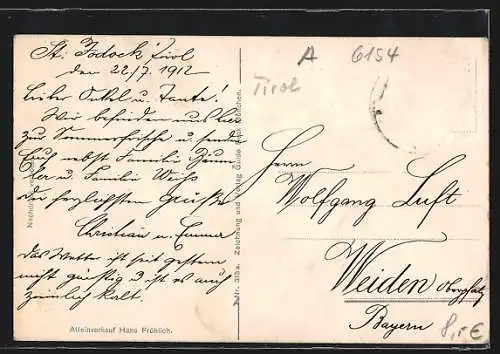 St: Jodock Tirol
den 22/7. 1912
Lieber Onkel u. Tante!
Wir befinden uns hier
zur Sommerfrische u. senden
Euch nebst Familie
u. Familie Weiß
die herzlichsten Grüße
Christian u. Emma
das Wetter ist seit gestern
nicht günstig u. ist es auch
ziemlich kalt.
Alleinverkauf Hans Fröhlich.
Zeichnung und Verlag Guido
A 6154
Tirol
Herrn
Wolfgang Luft
Weiden Oberpfalz
Bayern
8,- €